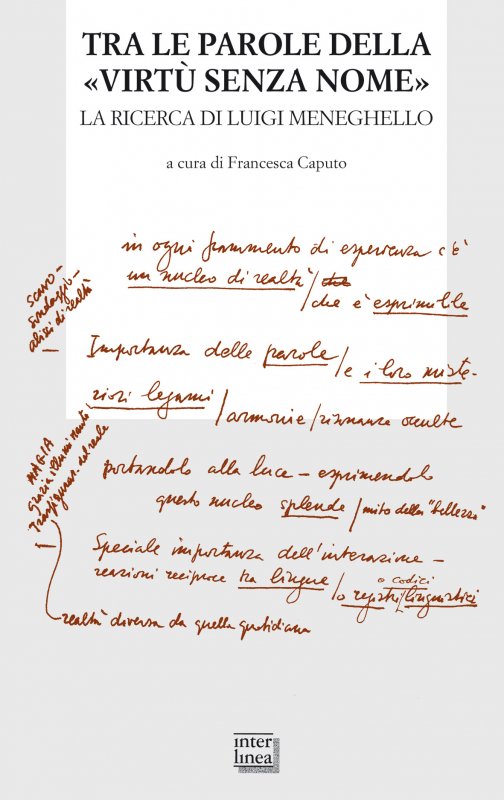 TRA LE PAROLE DELLA
«VIRTÙ SENZA NOME»
LA RICERCA DI LUIGI MENEGHELLO
a cura di Francesca Caputo
in ogni frammento di esperienza c'è
un nucleo di realtà / che è esprimibile
scavo -
sondaggio -
di realtà
Importanza delle parole / e i loro miste-
riosi legami / armonie / risonanze occulte
MAGIA
portandolo alla luce - esprimendolo
questo nucleo splende / mito della "bellezza"
Speciale importanza dell'interazione -
reazioni reciproche tra lingue / o registri linguistici
o codici
realtà diversa da quella quotidiana
inter
linea